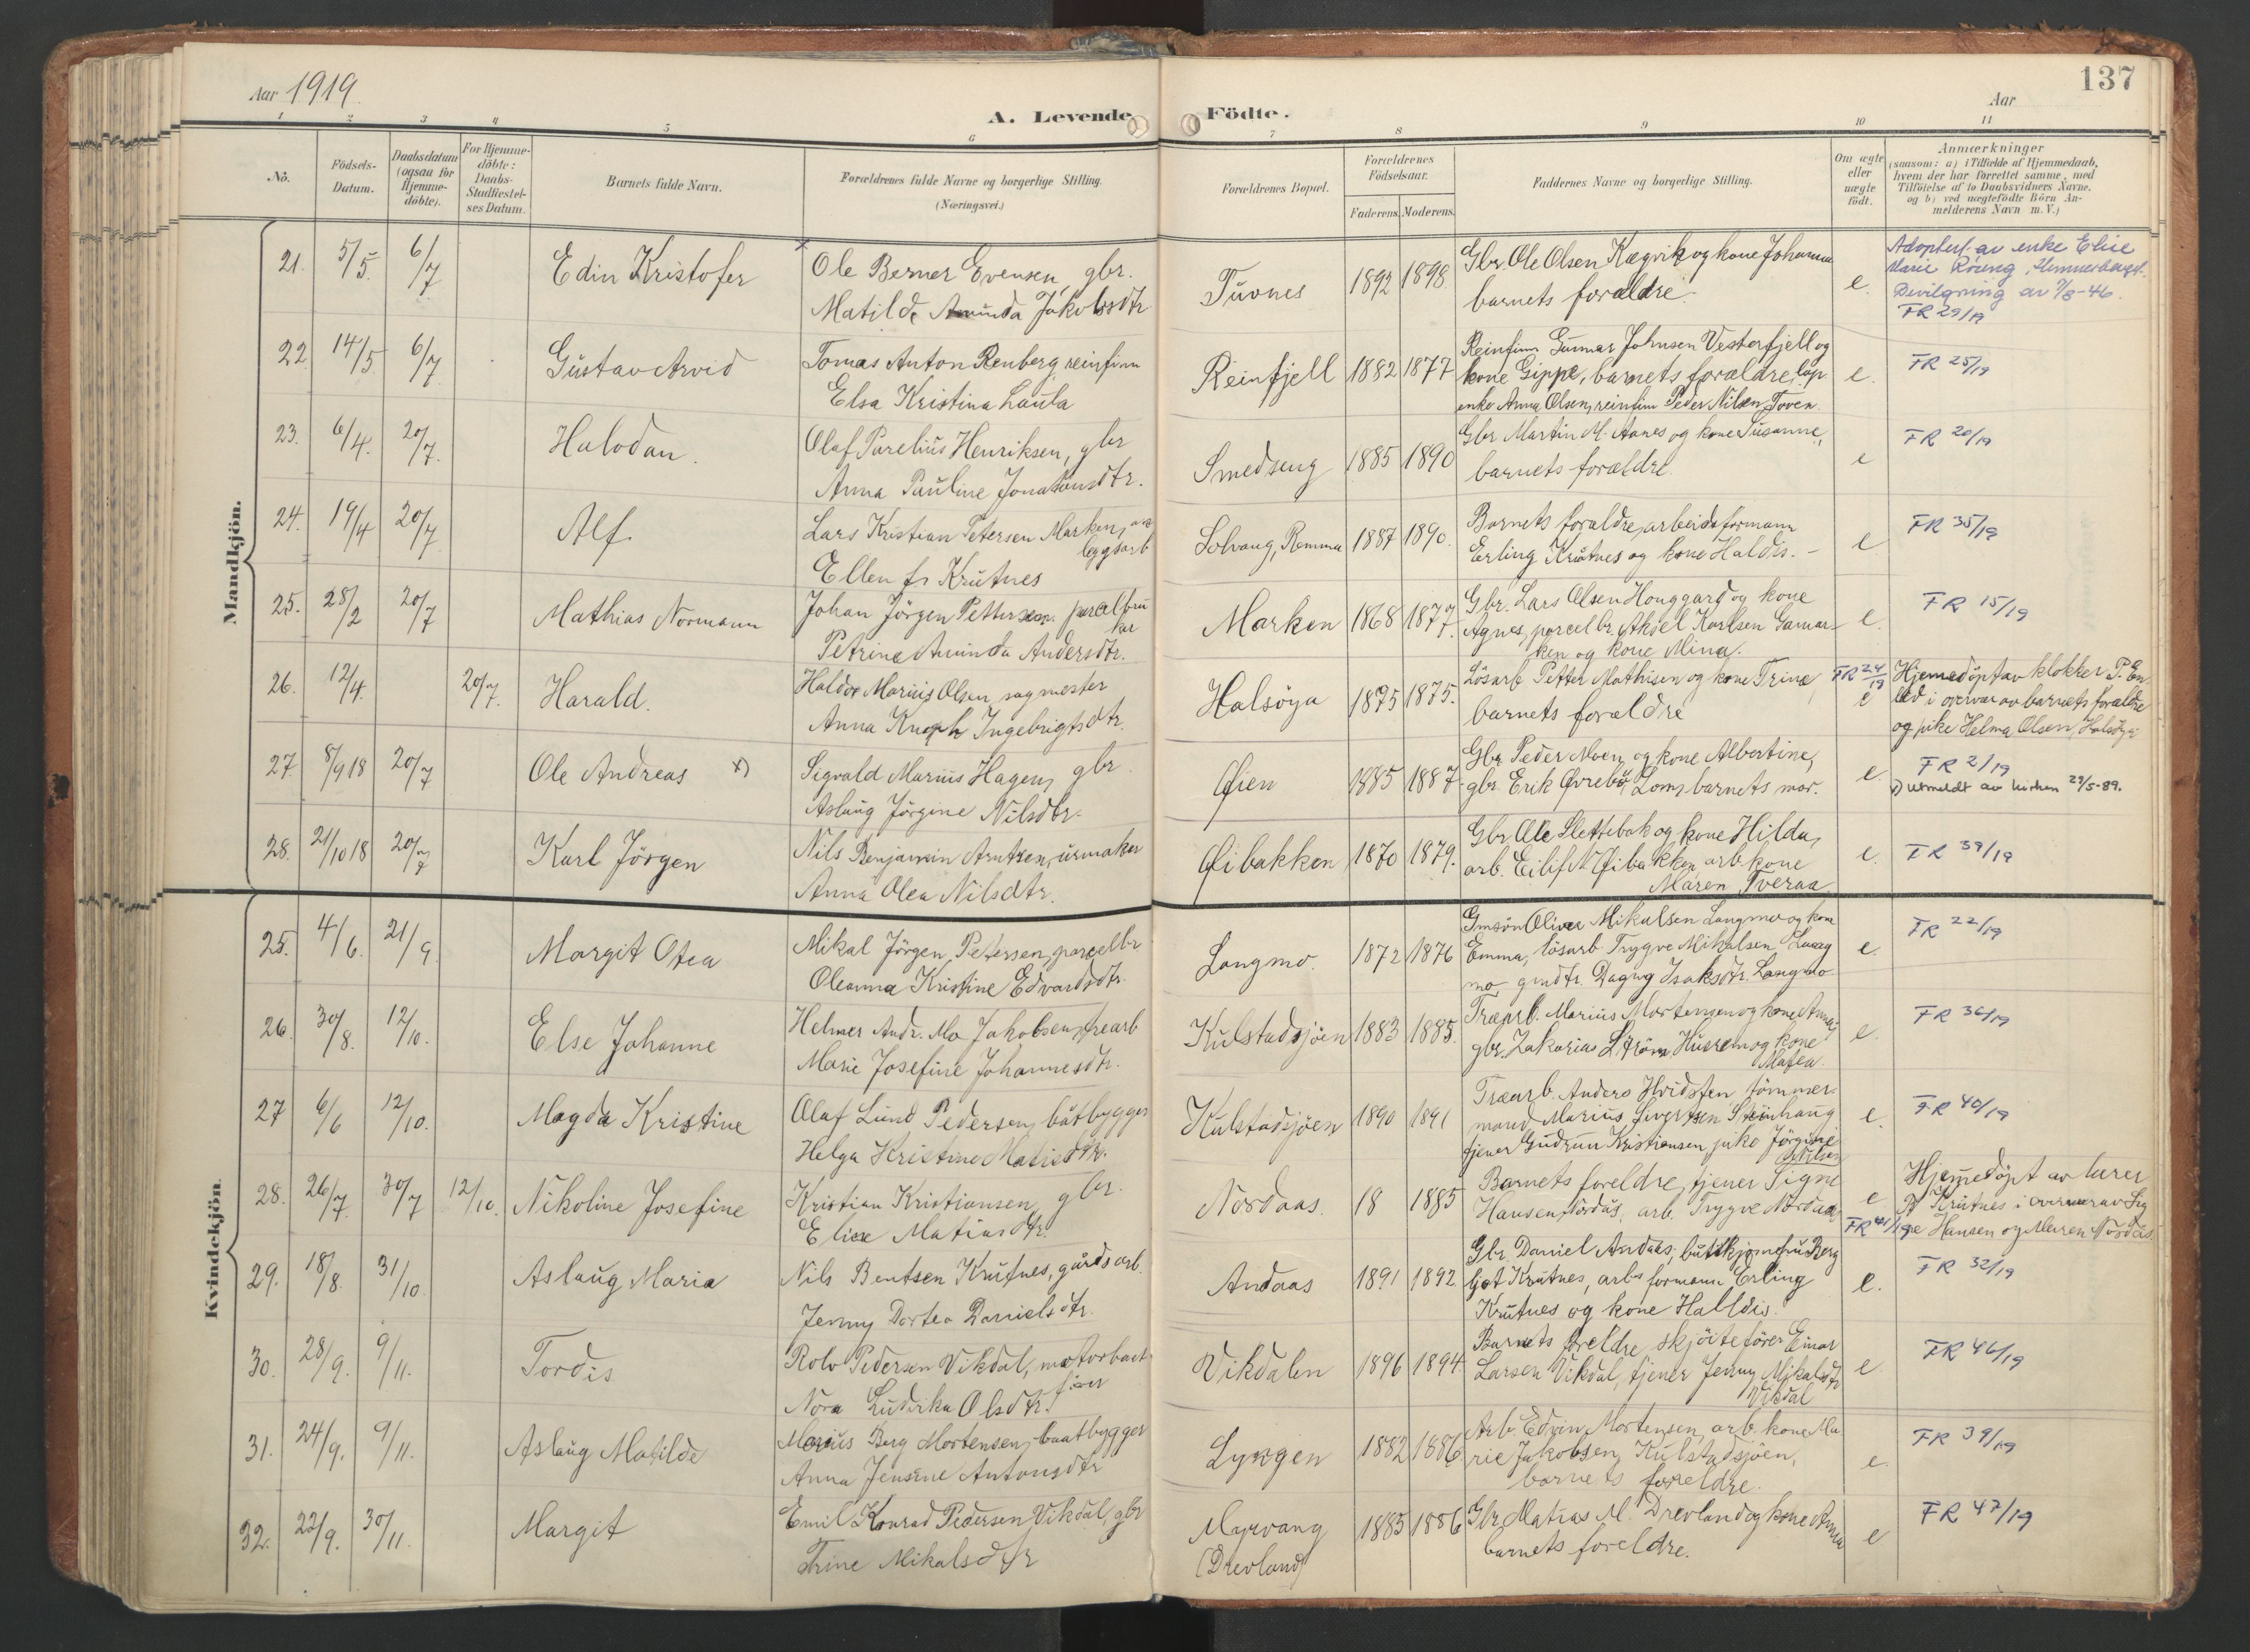 Aar 1919.
A. Levende Födte.
Aar
137
1 2 3 4 5 6 7 8 9 10 11
No.
Födsels-Datum.
Daabsdatum (ogsaa for Hjemme-döbte).
For Hjemme-döbte: Daabs-Stadfæstel-ses Datum.
Barnets fulde Navn.
Forældrenes fulde Navne og borgerlige Stilling. (Næringsvei.)
Forældrenes Bopæl.
Forældrenes Födselsaar.
Faderens. Moderens.
Faddernes Navne og borgerlige Stilling.
Om ægte eller uægte födt.
Anmærkninger (saasom: a) i Tilfælde af Hjemmedaab, hvem der har forrettet samme, med Tilföielse af to Daabsvidners Navne. og b) ved uægtefödte Börn An-melderens Navn m. V.)
Mandkjön.
21. 5/5. 6/7 Edin Kristofer
Ole Berner Evensen, gbr.
Matilde Aminda Jakobsdtr
Tuvnes 1892 1898.
Gbr. Ole Olsen Kægvik og kone Johanna
barnets forældre.
e.
Adoptert av enke Elise
Marie
Bevilgning av 7/8-46.
FR 29/19
22 14/5 6/7 Gustav Arvid
Tomas Anton Renberg reinfinn
Elsa Kristina Laula
Reinfjell 1882 1877
Reinfinn Gunnar Johnsen Vesterfjell og
kone Gippe, barnets forældre, lap.
enke Anna Olsen, reinfinn Peder Nilsen Toven.
e. FR 25/19
23. 6/4. 20/7. Halvdan.
Olaf Parelius Henriksen, gbr
Anna Pauline Jonatansdtr.
Smedseng 1885 1890
Gbr Martin M. Aanes og kone Susanne,
barnets forældre.
e FR 20/19
24. 19/4 20/7 Alf.
Lars Kristian Petersen Marken, an
leggsarb
Ellen f. Krutnes
Solvang, Remma 1887 1890.
Barnets foraldre, arbeidsformann
Erling Krutnes og kone Haldis. -
e FR 35/19
25. 28/2 20/7 Mathias Normann
Johan Jörgen Pettersen. parcelbru
ker
Petrine Aminda Andersdtr.
Marken 1868 1877.
Gbr. Lars Olsen Honggard og kone
Agnes, parcelbr. Aksel Karlsen Gamar-
ken og kone Mina.
e. FR 15/19
26. 12/4. 20/7. Harald.
Haldor Marius Olsen, sagmester
Anna Knoph Ingebrigtsdtr.
Halsöya 1875 1875.
Lösarb Petter Mathisen og kone Trine
barnets forældre
FR 24/19
e
Hjemedöpt av klokker P. En
led i overvær av barnets forældre
og pike Helma Olsen, Halsöya
27. 8/9 18 20/7 Ole Andreas x)
Sigvald Marius Hagen, gbr.
Aslaug Jörgine Nilsdtr.
Øien 1885 1887.
Gbr Peder Moen og kone Albertine,
gbr. Erik Øvrebö, Lom, barnets mor.
e. FR 2/19
x) utmeldt av kirken 29/5-89.
28. 21/10 18 20/7 Karl Jörgen
Nils Benjamin Arntzen, urmaker
Anna Olea Nilsdtr.
Øibakken 1870 1879.
Gbr Ole Slettebak og kone Hilda,
arb. Eilif N. Øibakken, arb. kone
Maren Tveraa
e. FR 39/19
Kvindekjön.
25. 4/6. 21/9. Margit Otea
Mikal Jörgen Petersen, parcelbr
Oleanna Kristine Edvardsdtr.
Langmo. 1872 1876
Gmsön Oliver Mikalsen Langmo og kone
Emma, lösarb. Trygve Mikalsen Lang
mo, gmdtr. Dagny Isaksdtr. Langmo
e. FR 22/19
26. 30/8. 12/10. Else Johanne
Helmer Andr. Mo Jakobsen, trearb
Marie Josefine Johannesdtr.
Kulstadsjöen 1883 1885.
Træarb. Marius Mortensen og kone Anna,
gbr. Zakarias Ström, Husrem og kone
Matea.
e. FR 36/19
27 6/6 12/10. Magda Kristine
Olaf Lund Pedersen, båtbygger
Helga Kristine Matisdtr.
Kulstadsjöen 1890 1891
Træarb. Anders Hvidsten, tömmer-
mand Marius Sivertsen Steinhaug
tjener Gudrun Kristiansen, pike Jörgine
Nilsen
e. FR 40/19
28. 26/7. 30/7 12/10. Nikoline Josefine
Kristian Kristiansen, gbr.
Elise Matiasdtr.
Nordaas. 18 1885
Barnets foreldre, tjener Signe
Hansen, Nordås, arb. Trygve Nordaas
e FR 41/19
Hjemedöpt av lærer
P. Krutnes i overvær av Sig
ne Hansen og Maren Nordås.
29. 18/8. 31/10. Aslaug Maria
Nils Bentsen Krutnes, gårdsarb.
Jenny Dortea Danielsdtr.
Andaas 1891 1892
Gbr. Daniel Andaas, Berg
ljot Krutnes, arb. formann Erling
Krutnes og kone Halldis.
e. FR 32/19
30. 28/9. 9/11. Tordis
Rolv Pedersen Vikdal, motorbaat
förer
Nora Ludvika Olsdtr.
Vikdalen 1896 1894.
Barnets foreldre, skjöiteförer Einar
Larsen Vikdal, tjener Jenny Mikalsdtr
Vikdal
e FR 46/19
31. 24/9. 9/11. Aslaug Matilde
Marius Berg Mortensen, baatbygger
Anna Jensine Antonsdtr
Lyngen 1882 1886
Arb. Edvin Mortensen, arb. kone Ma
rie Jakobsen, Kulstadsjöen,
barnets foreldre.
e. FR 39/19
32. 23/9. 30/11. Margit
Emil Konrad Pedersen Vikdal, gbr
Trine Mikalsdtr
Myrvang
(Drevland)
1885 1886
Gbr Matias M. Drevland og kone Anna
barnets foreldre.
e FR 47/19